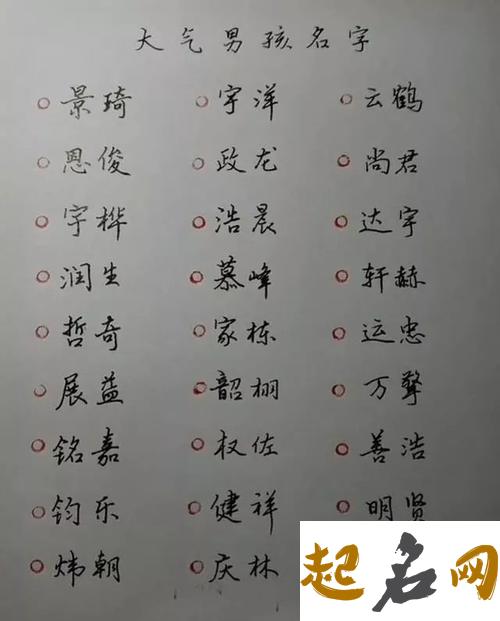 大气男孩名字
景琦 宇洋 云鹤
恩俊 政龙 尚君
宇桦 浩晨 达宇
润生 慕峰 轩赫
哲奇 家栋 运忠
展益 韶栩 万聲
铭嘉 权佐 善浩
钧乐 健祥 明贤
炜朝 庆林
起名网